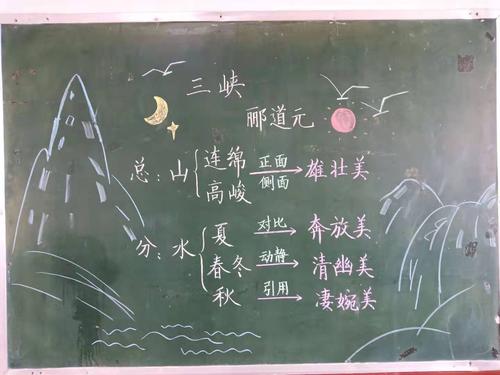 三峡
郦道元
总：山 连绵 正面 雄壮美
高峻 侧面
分：水 夏 对比 奔放美
春冬 动静 清幽美
秋 引用 凄婉美